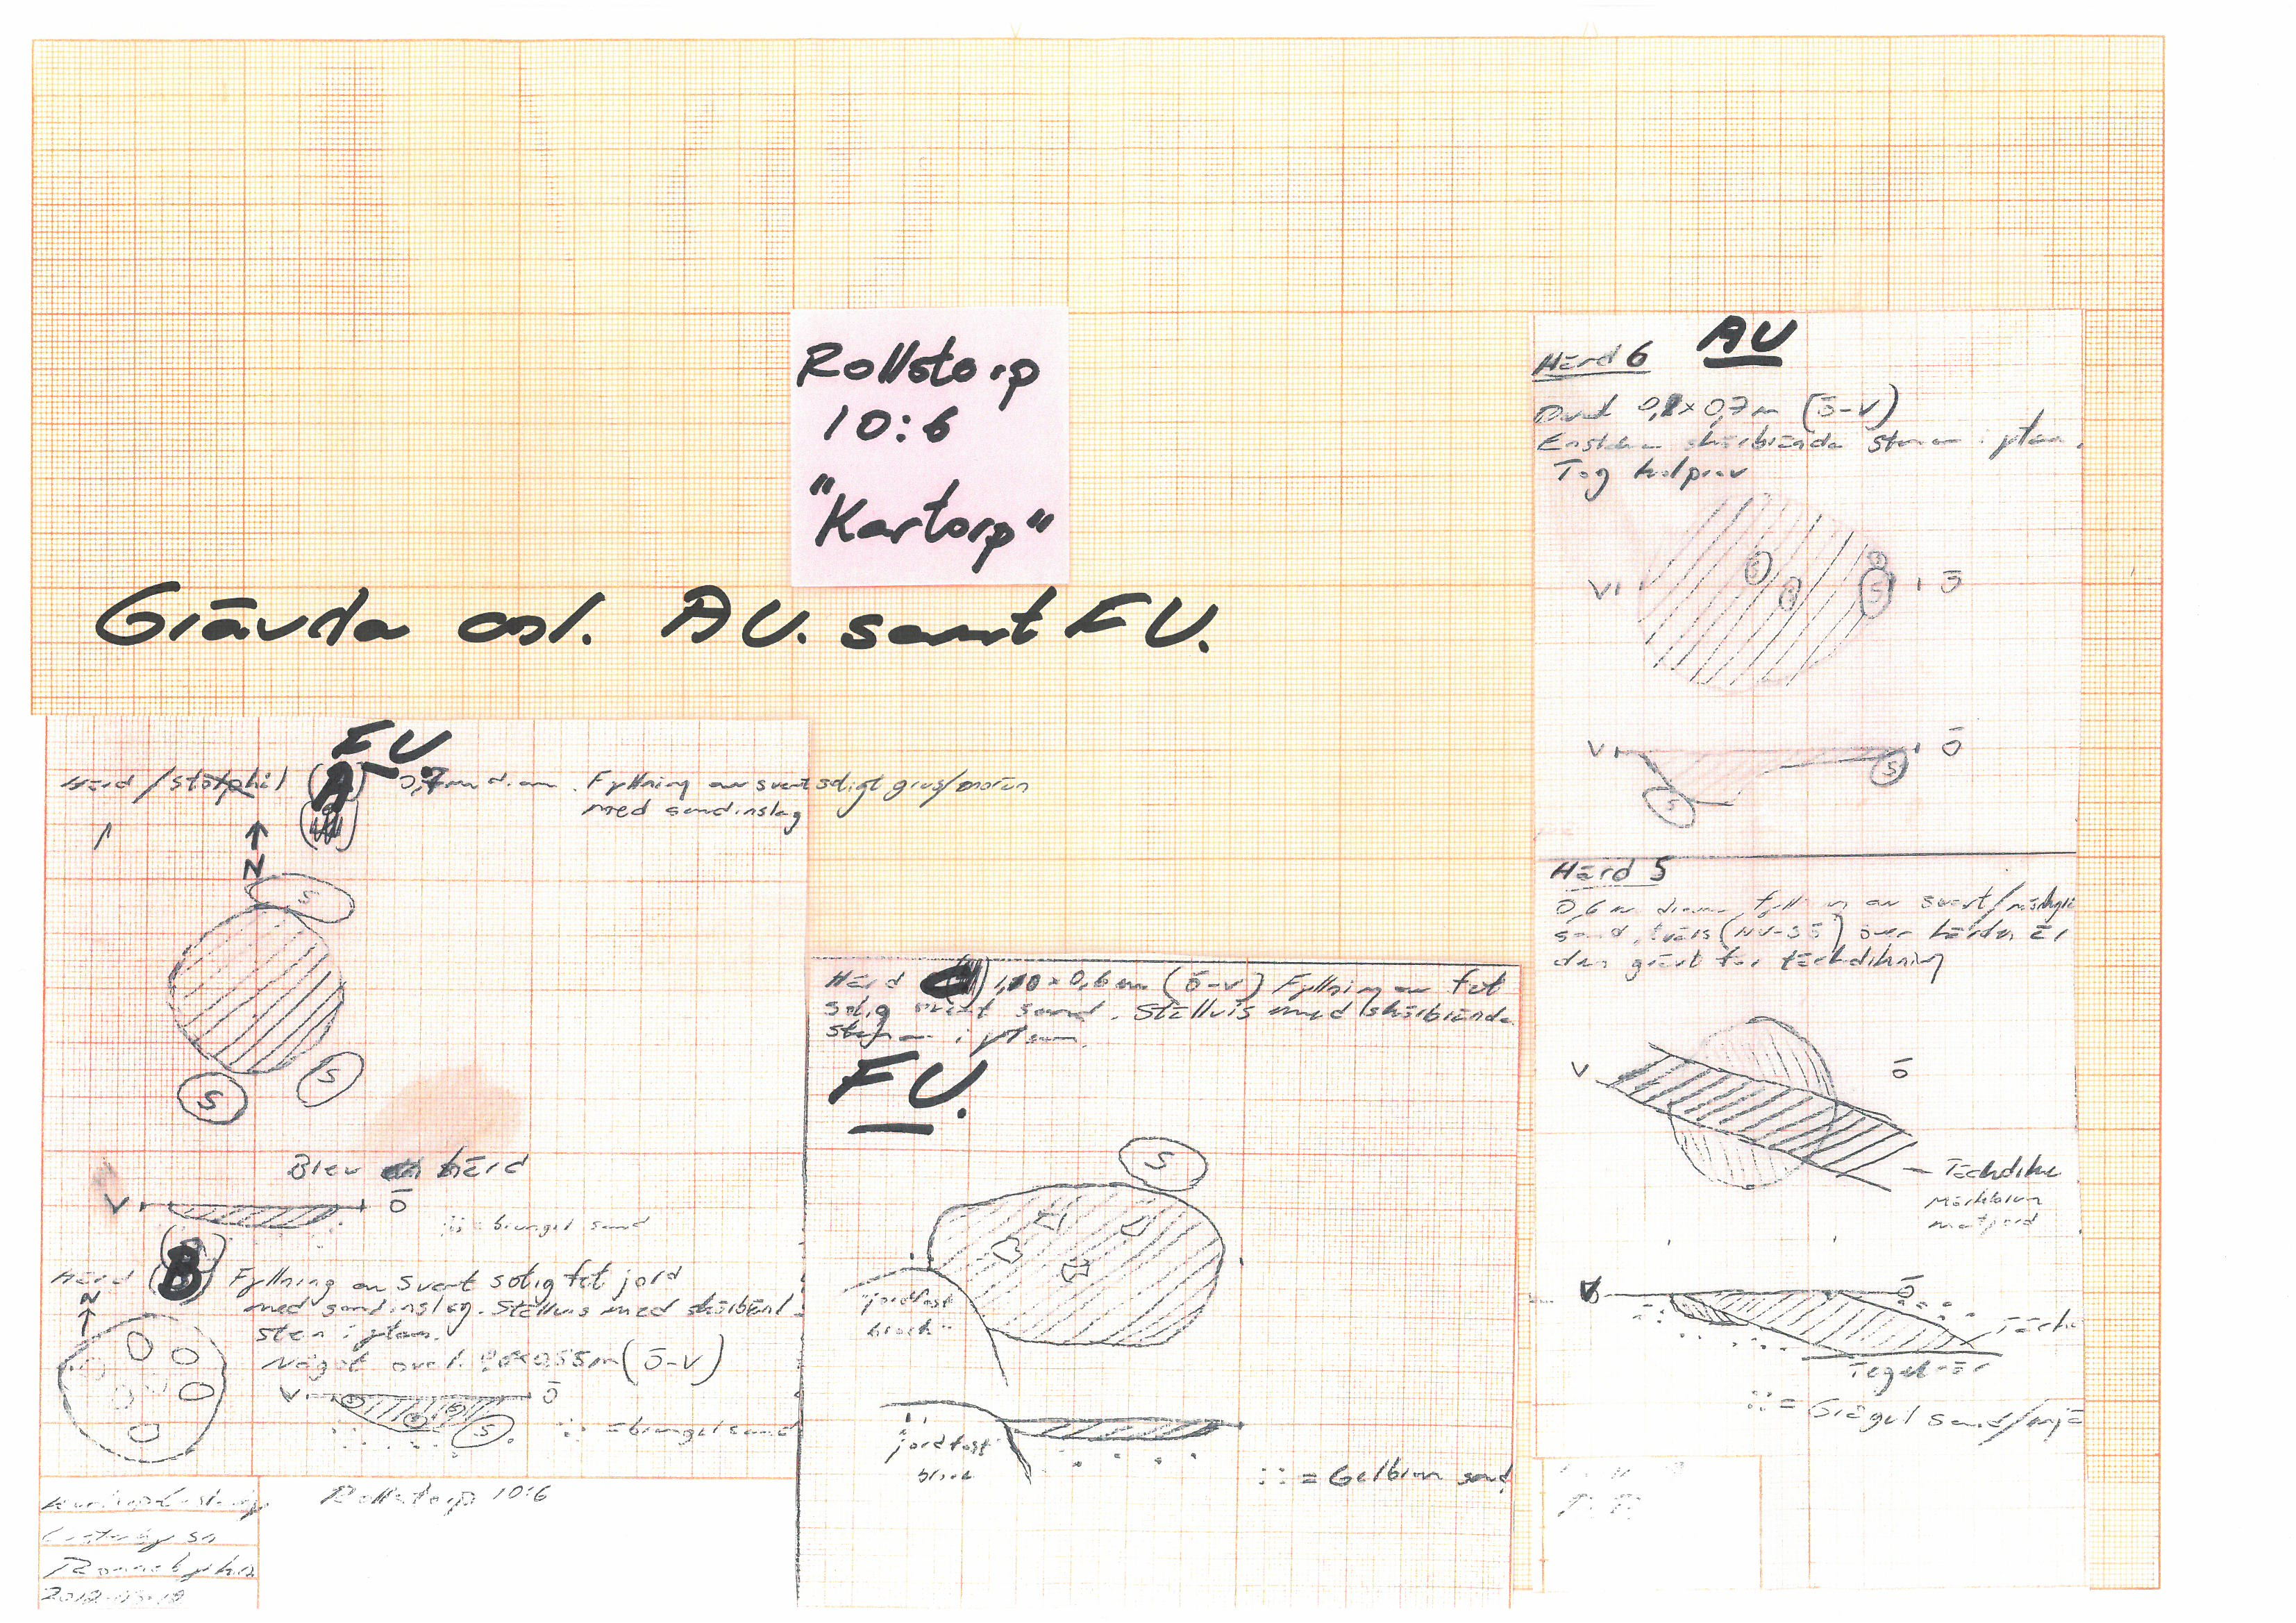 Rollstorp
10:6
"Kartorp"
Grävda anl. AU. samt FU.
FU
Härd / stolphål (A) 0,7 m diam. Fyllning av svart sotigt grus/morän
med sandinslag
N
S
S
S
Blev härd
V Ö
= brungul sand
Härd B Fyllning av svart sotig fet jord
med sandinslag. Ställvis med skärbränd
sten i ytan.
Något oval. 0,55 m (Ö-V)
N
V Ö
S
= brungul sand
Rollstorp 10:6
sn
Ronneby kn
Härd 1,10 x 0,6 m (Ö-V) Fyllning av fet
sotig svart sand. Ställvis med skärbrända
stenar i ytan.
FU.
S
jordfast
block
jordfast
block
= Gulbrun sand
AU
Härd 6
0,7 m (Ö-V)
Enstaka skärbrända stenar i ytan.
Tog kolprov
V Ö
S
S
V Ö
S
S
Härd 5
0,6 m diam fyllning av svart/
sand, tvärs (NV-SÖ) över härden är
den grävt för täckdikning
V Ö
Täckdike
Mörkbrun
matjord
V Ö
Täck
Tegelrör
= Grågul sand/